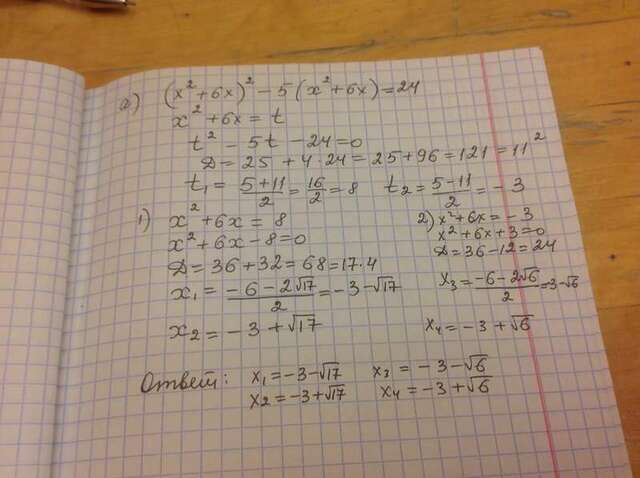 а) (x² + 6x)² - 5(x² + 6x) = 24
x² + 6x = t
t² - 5t - 24 = 0
D = 25 + 4·24 = 25 + 96 = 121 = 11²
t₁ = (5+11)/2 = 16/2 = 8 t₂ = (5-11)/2 = -3
1) x² + 6x = 8
x² + 6x - 8 = 0
D = 36 + 32 = 68 = 17·4
x₁ = (-6 - 2√17)/2 = -3 - √17
x₂ = -3 + √17
2) x² + 6x = -3
x² + 6x + 3 = 0
D = 36 - 12 = 24
x₃ = (-6 - 2√6)/2 = -3 - √6
x₄ = -3 + √6
Ответ: x₁ = -3 - √17 x₃ = -3 - √6
x₂ = -3 + √17 x₄ = -3 + √6